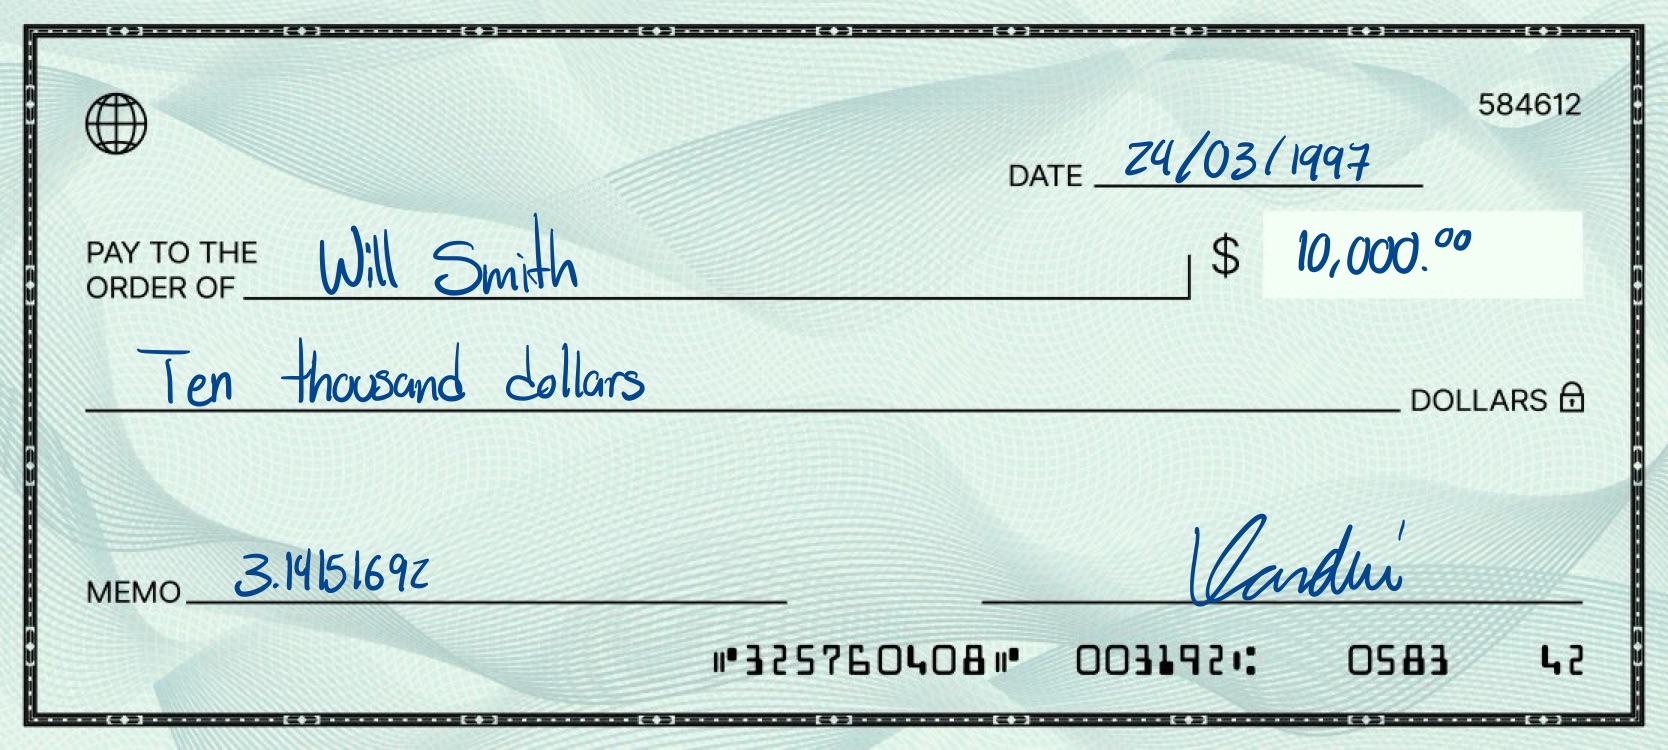 584612
DATE 24/03/1997
PAY TO THE
ORDER OF Will Smith $ 10,000.00
Ten thousand dollars DOLLARS
MEMO 3.14151692
325760408 003192 0583 42